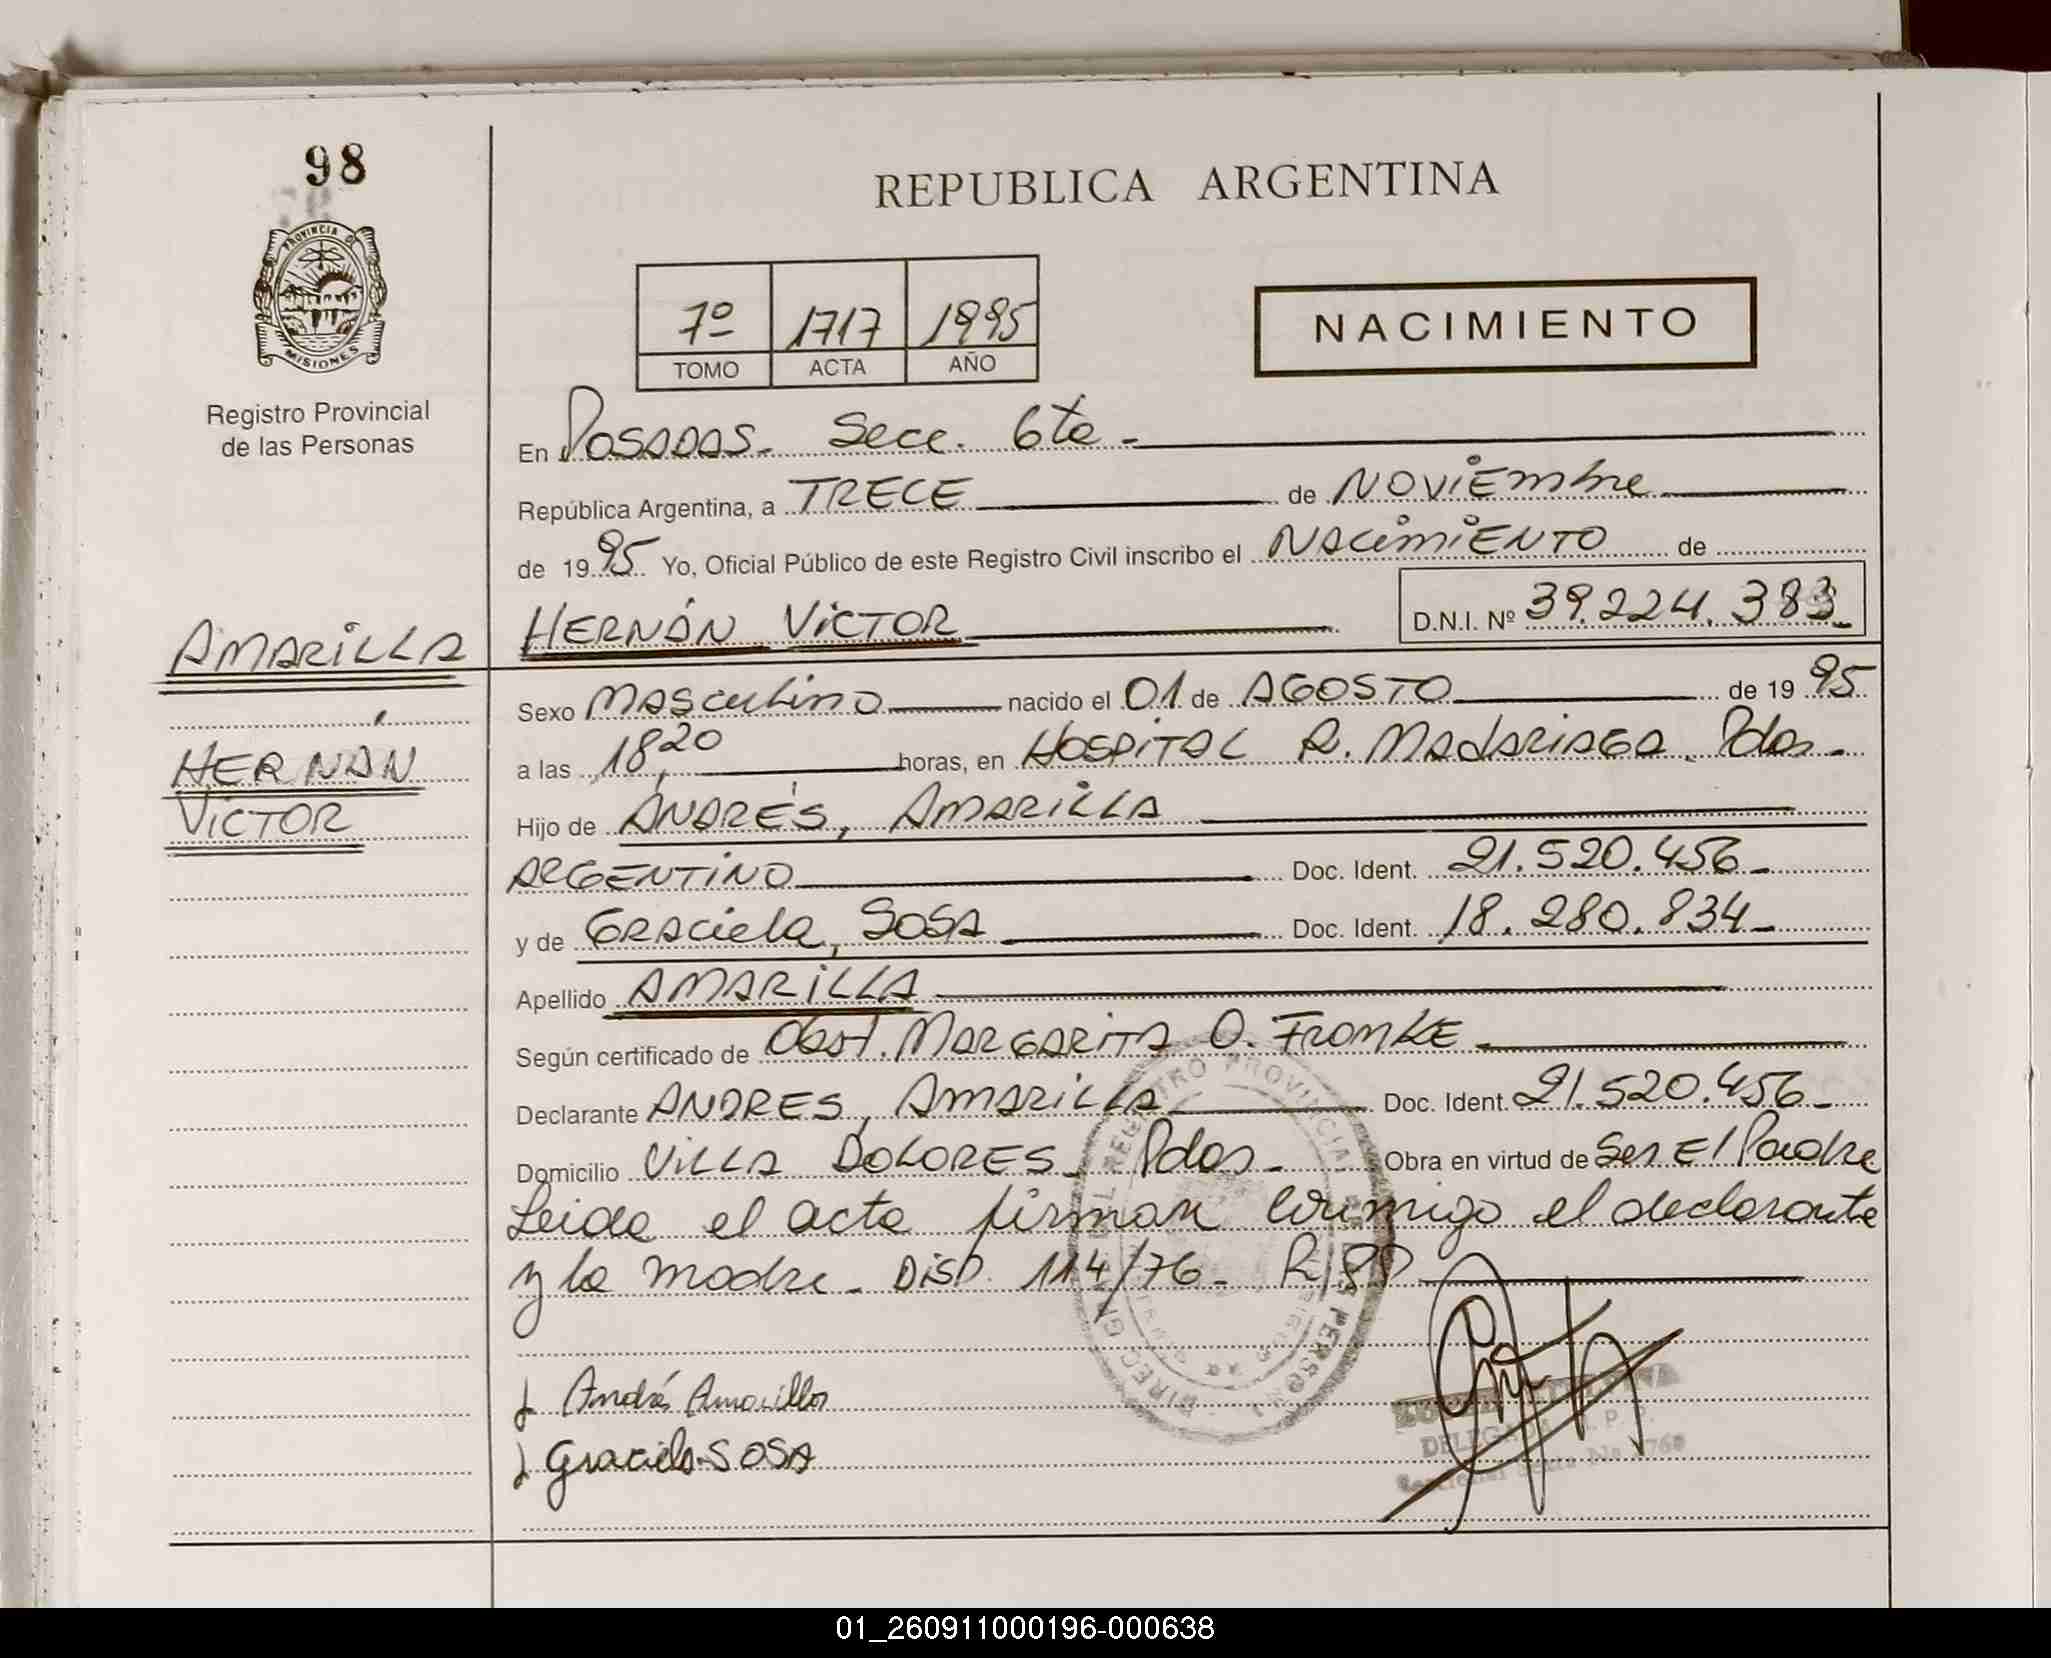 98
PROVINCIA DE
MISIONES
Registro Provincial
de las Personas
AMARILLA
HERNÁN
VICTOR
REPUBLICA ARGENTINA
7º 1717 1995
TOMO ACTA AÑO
NACIMIENTO
En POSADAS. Secc. 6ta -
República Argentina, a TRECE de NOVIEMbre
de 1995 Yo, Oficial Público de este Registro Civil inscribo el NACIMIENTO de
HERNÁN VICTOR D.N.I. Nº 39.224.383
Sexo MASCULINO nacido el 01 de AGOSTO de 1995
a las 18,20 horas, en HOSPITAL R. MADARIAGA. Pdas.
Hijo de ANDRÉS, AMARILLA
ARGENTINO Doc. Ident. 21.520.456
y de GRACIELA, SOSA Doc. Ident. 18.280.834
Apellido AMARILLA
Según certificado de Obst. MARGARITA O. FROMKE
Declarante ANDRES, AMARILLA Doc. Ident. 21.520.456
Domicilio VILLA DOLORES. Pdas. Obra en virtud de Ser El Padre
Leida el acta firman conmigo el declarante
y la madre. DISP. 114/76.
Andrés Amarilla
Graciela SOSA
REGISTRO PROVINCIAL
DELEGADA R.P.P.
01_260911000196-000638